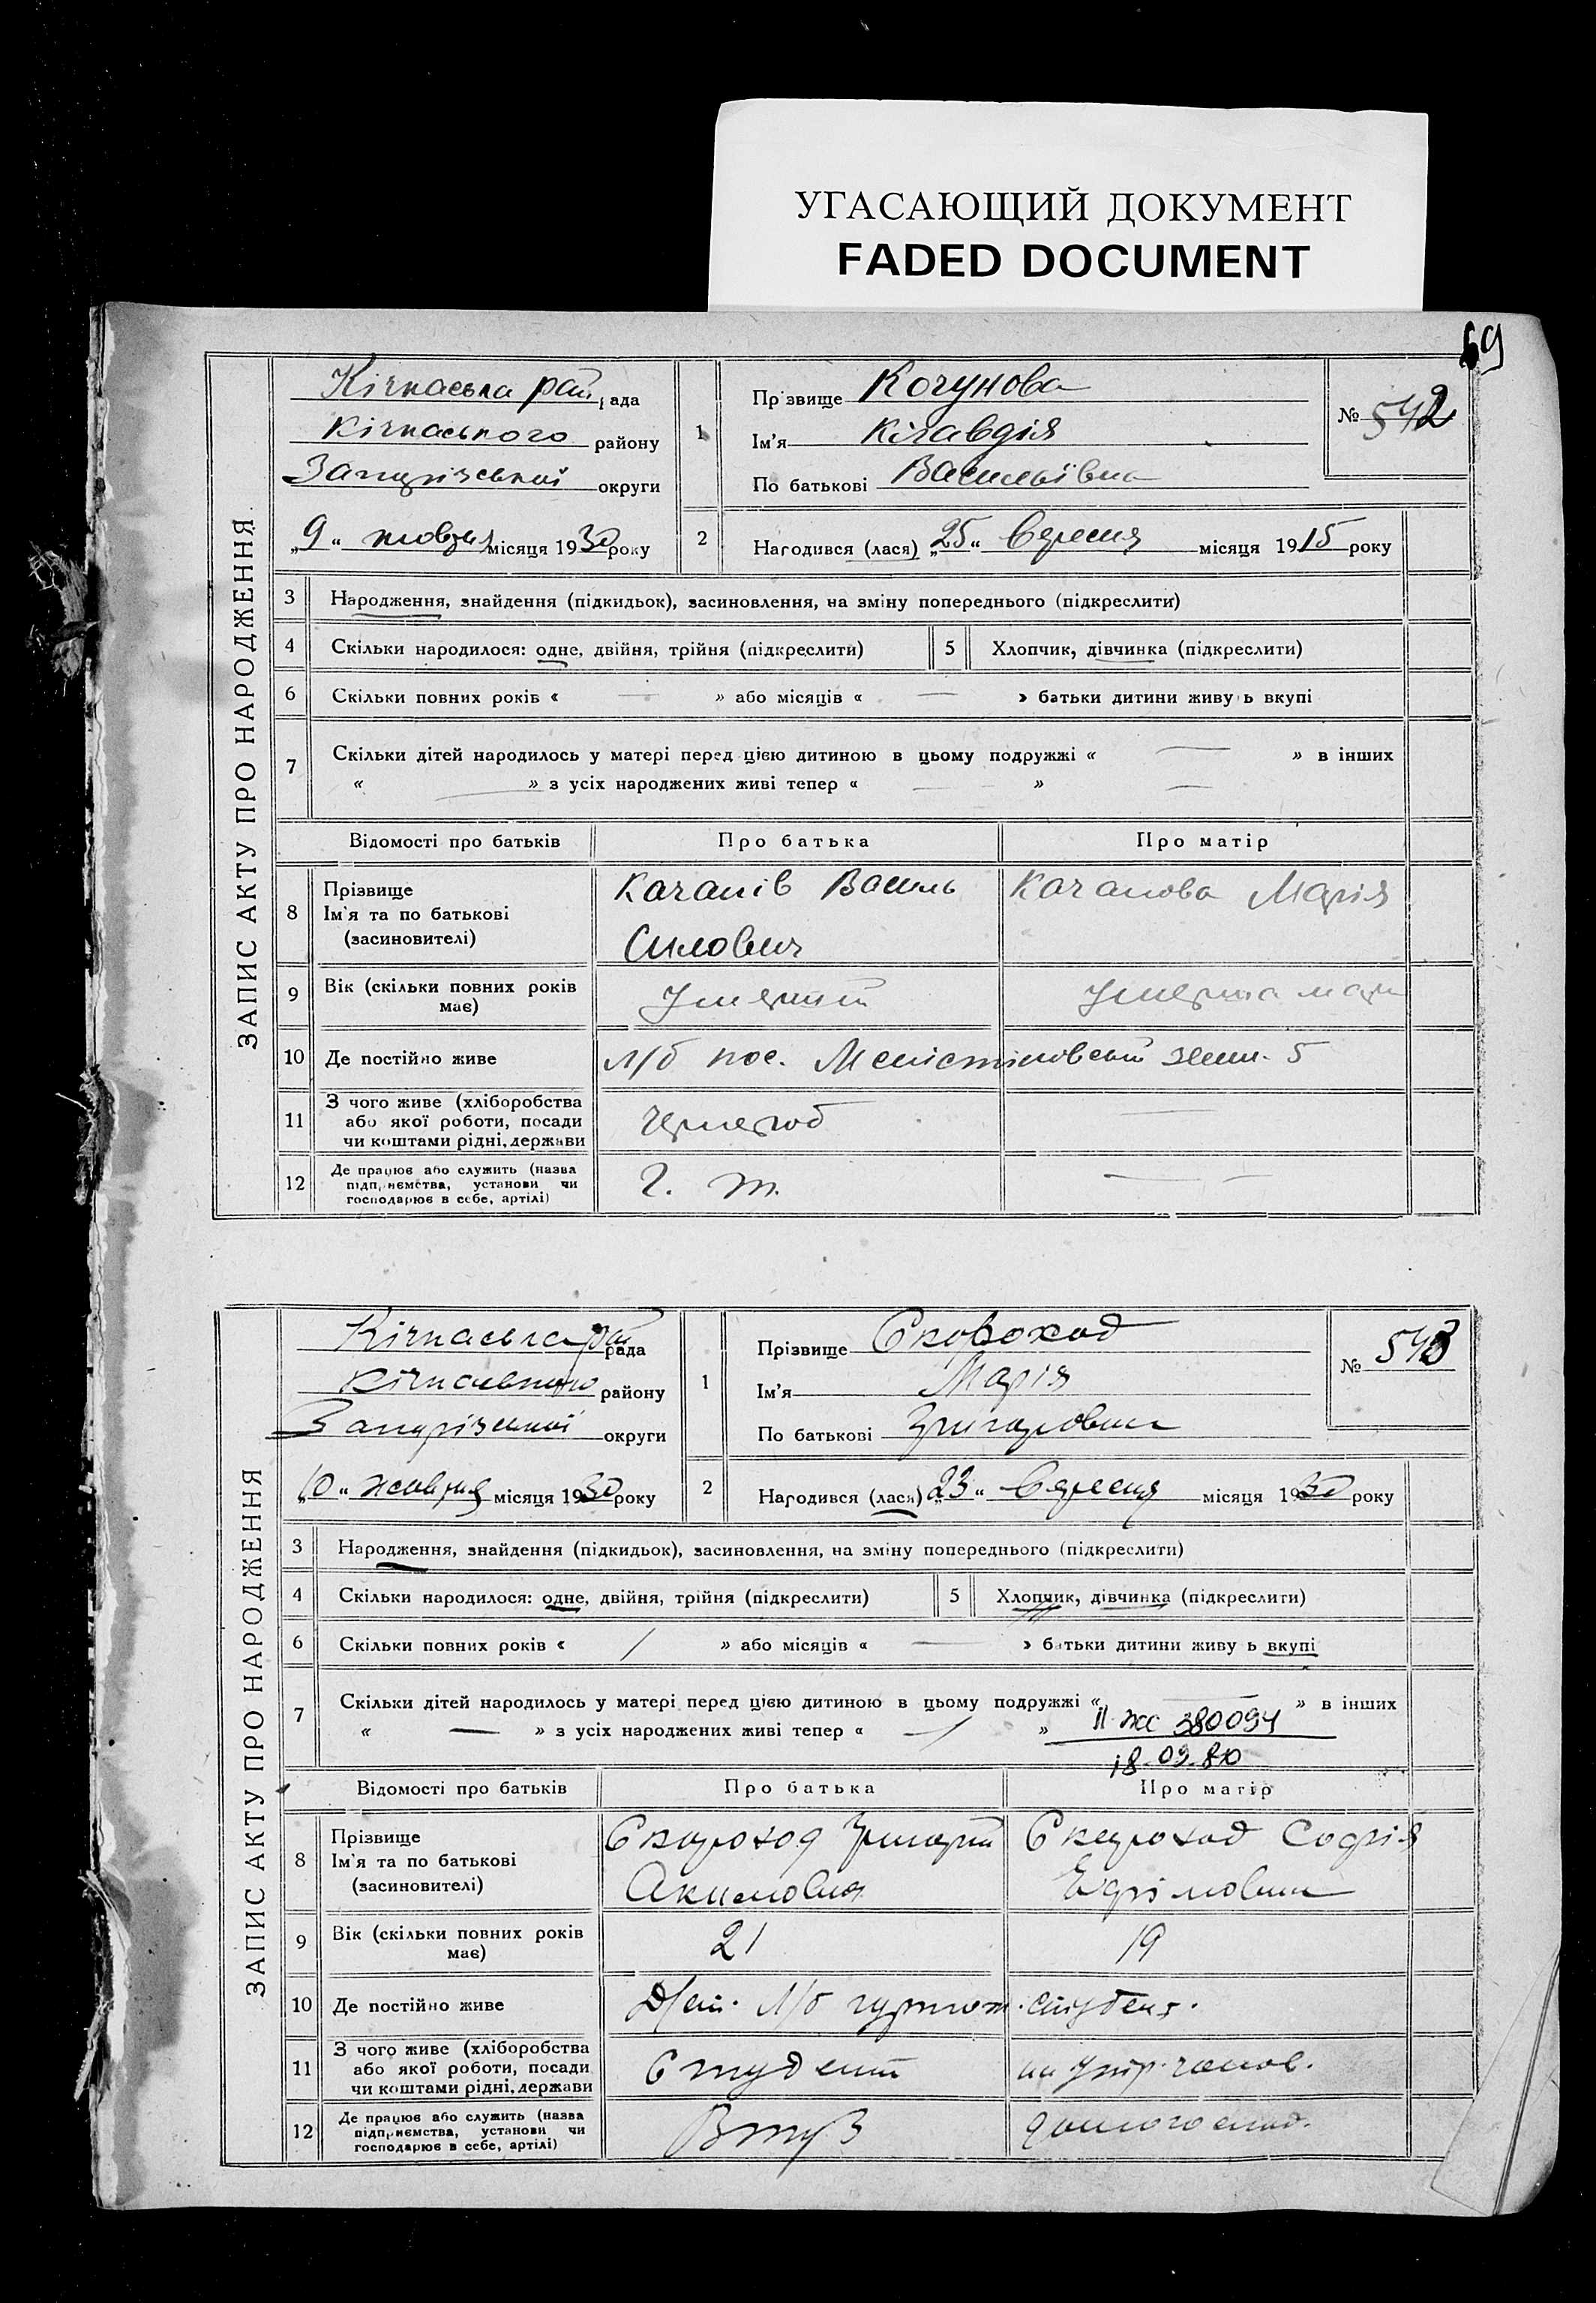 УГАСАЮЩИЙ ДОКУМЕНТ
FADED DOCUMENT
69
ЗАПИС АКТУ ПРО НАРОДЖЕННЯ
Кічкаська рай рада
Кічкаського району
Запорізької округи
„9“ жовтня місяця 1930 року
1
Прізвище Кочунова
Ім'я Клавдія
По батькові Васильївна
№ 542
2
Народився (лася) „25“ Вересня місяця 1915 року
3 Народження, знайдення (підкидьок), засиновлення, на зміну попереднього (підкреслити)
4 Скільки народилося: одне, двійня, трійня (підкреслити) 5 Хлопчик, дівчинка (підкреслити)
6 Скільки повних років « — » або місяців « — » батьки дитини живуть вкупі
7 Скільки дітей народилось у матері перед цією дитиною в цьому подружжі « — » в інших
« — » з усіх народжених живі тепер « — » —
Відомості про батьків Про батька Про матір
8 Прізвище Ім'я та по батькові (засиновителі)
Качанів Василь Силович
Качанова Марія
9 Вік (скільки повних років має)
Умерший
Умерша
10 Де постійно живе
Л/б пос. 5
11 З чого живе (хліборобства або якої роботи, посади чи коштами рідні, держави
—
12 Де працює або служить (назва підприємства, установи чи господарює в себе, артілі)
— —
ЗАПИС АКТУ ПРО НАРОДЖЕННЯ
Кічкаська рай рада
Кічкаського району
Запорізької округи
„10“ жовтня місяця 1930 року
1
Прізвище Скороход
Ім'я Марія
По батькові Григоровна
№ 543
2
Народився (лася) „23“ Вересня місяця 1930 року
3 Народження, знайдення (підкидьок), засиновлення, на зміну попереднього (підкреслити)
4 Скільки народилося: одне, двійня, трійня (підкреслити) 5 Хлопчик, дівчинка (підкреслити)
6 Скільки повних років « / » або місяців « — » батьки дитини живуть вкупі
7 Скільки дітей народилось у матері перед цією дитиною в цьому подружжі « — » в інших
« — » з усіх народжених живі тепер « — » II ЖС 380094
18.09.80
Відомості про батьків Про батька Про матір
8 Прізвище Ім'я та по батькові (засиновителі)
Скороход Григорій Акимович
Скороход Софія Єфрімовна
9 Вік (скільки повних років має)
21
19
10 Де постійно живе
Л/б гуртож. студент.
11 З чого живе (хліборобства або якої роботи, посади чи коштами рідні, держави
Студент
на утр. чолов.
12 Де працює або служить (назва підприємства, установи чи господарює в себе, артілі)
Втуз
домогоспод.